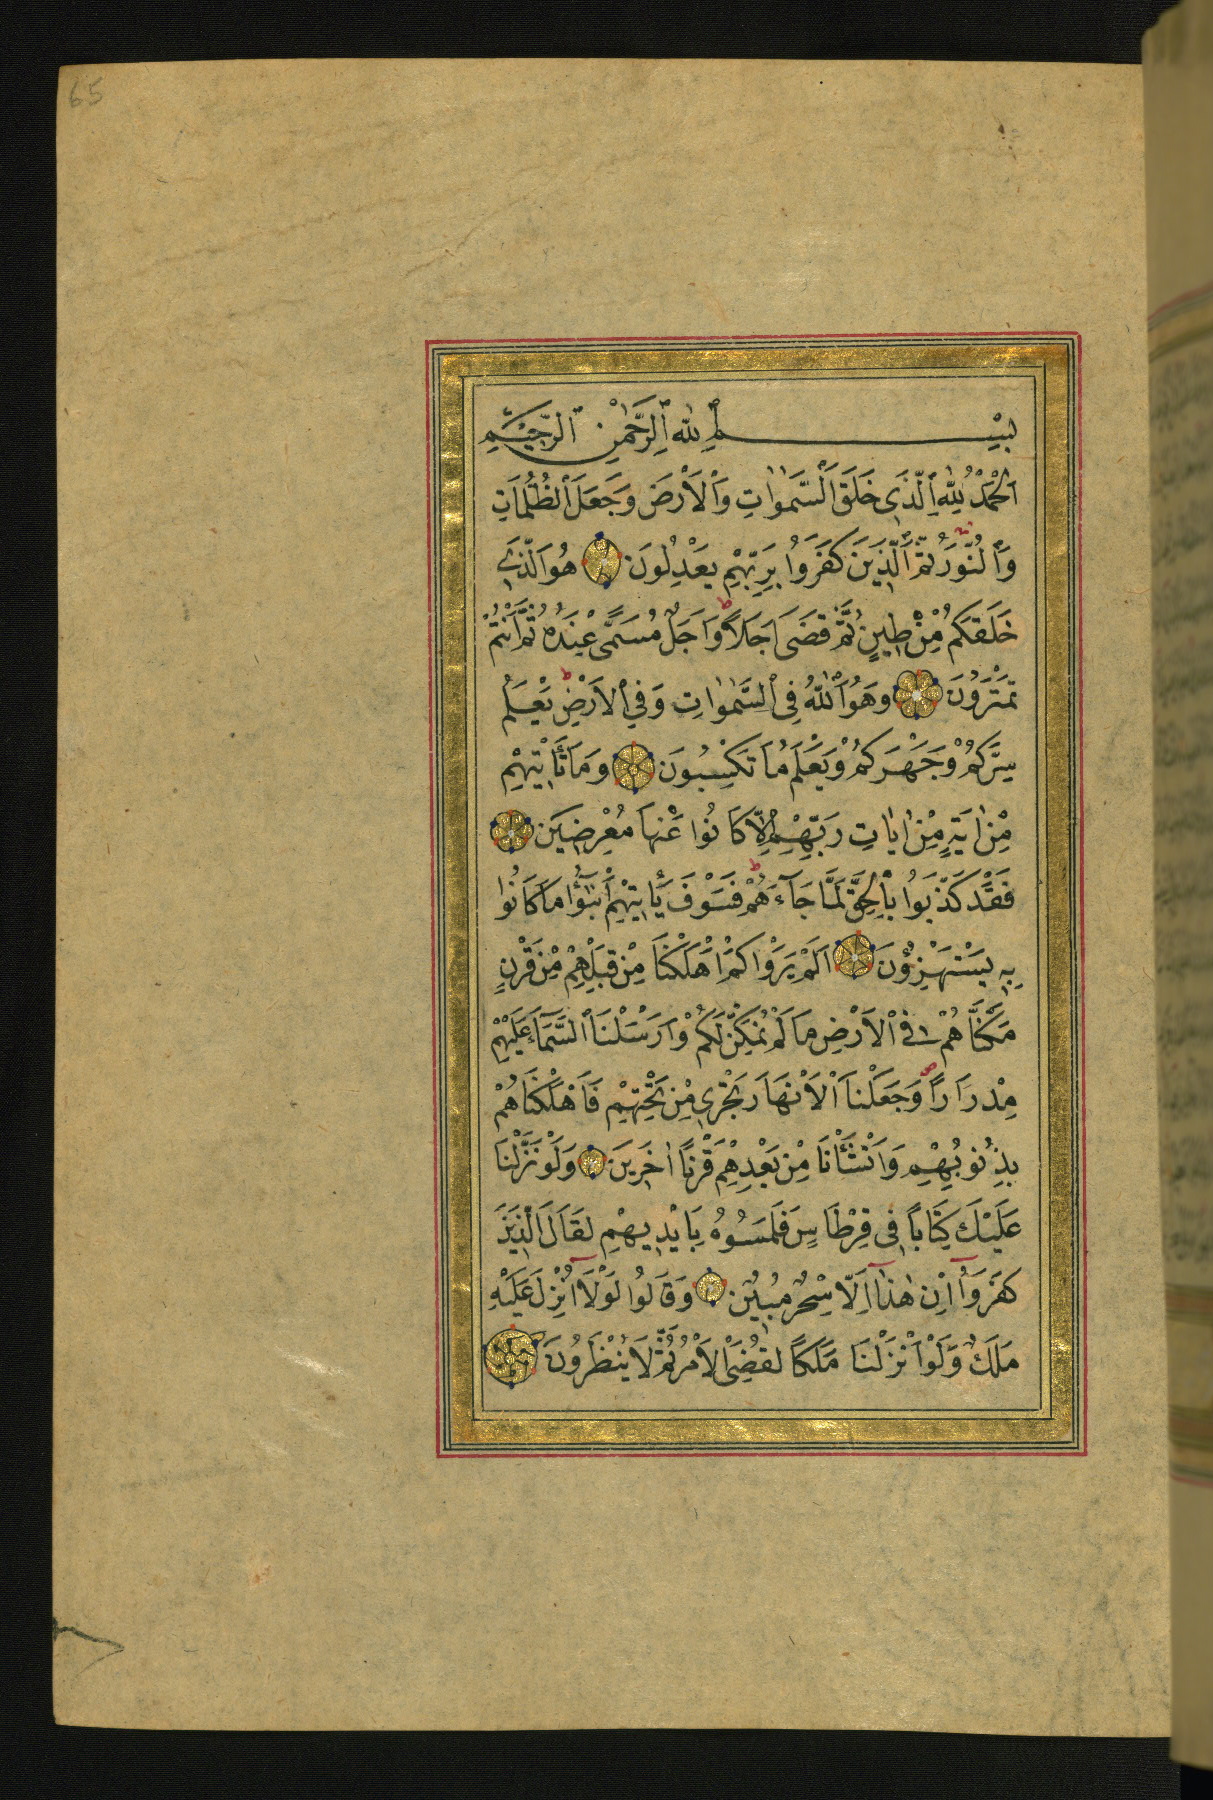 65
بِسْمِ اللهِ الرَّحْمٰنِ الرَّحِيمِ
اَلْحَمْدُ لِلّٰهِ الَّذِي خَلَقَ السَّمٰوَاتِ وَالْاَرْضَ وَجَعَلَ الظُّلُمَاتِ
وَالنُّورَ ثُمَّ الَّذِينَ كَفَرُوا بِرَبِّهِمْ يَعْدِلُونَ هُوَ الَّذِي
خَلَقَكُمْ مِنْ طِينٍ ثُمَّ قَضَى اَجَلًا ط وَاَجَلٌ مُسَمًّى عِنْدَهُ ثُمَّ اَنْتُمْ
تَمْتَرُونَ وَهُوَ اللّٰهُ فِي السَّمٰوَاتِ وَفِي الْاَرْضِ ط يَعْلَمُ
سِرَّكُمْ وَجَهْرَكُمْ وَيَعْلَمُ مَا تَكْسِبُونَ وَمَا تَأْتِيهِمْ
مِنْ اٰيَةٍ مِنْ اٰيَاتِ رَبِّهِمْ اِلَّا كَانُوا عَنْهَا مُعْرِضِينَ
فَقَدْ كَذَّبُوا بِالْحَقِّ لَمَّا جَآءَهُمْ ط فَسَوْفَ يَأْتِيهِمْ اَنْبٰٓؤُا مَا كَانُوا
بِهِ يَسْتَهْزِؤُنَ اَلَمْ يَرَوْا كَمْ اَهْلَكْنَا مِنْ قَبْلِهِمْ مِنْ قَرْنٍ
مَكَّنَّاهُمْ فِي الْاَرْضِ مَا لَمْ نُمَكِّنْ لَكُمْ وَاَرْسَلْنَا السَّمَآءَ عَلَيْهِمْ
مِدْرَارًا ص وَجَعَلْنَا الْاَنْهَارَ تَجْرِي مِنْ تَحْتِهِمْ فَاَهْلَكْنَاهُمْ
بِذُنُوبِهِمْ وَاَنْشَأْنَا مِنْ بَعْدِهِمْ قَرْنًا اٰخَرِينَ وَلَوْ نَزَّلْنَا
عَلَيْكَ كِتَابًا فِي قِرْطَاسٍ فَلَمَسُوهُ بِاَيْدِيهِمْ لَقَالَ الَّذِينَ
كَفَرُوا اِنْ هٰذَا اِلَّا سِحْرٌ مُبِينٌ وَقَالُوا لَوْلَا اُنْزِلَ عَلَيْهِ
مَلَكٌ وَلَوْ اَنْزَلْنَا مَلَكًا لَقُضِيَ الْاَمْرُ ثُمَّ لَا يُنْظَرُونَ